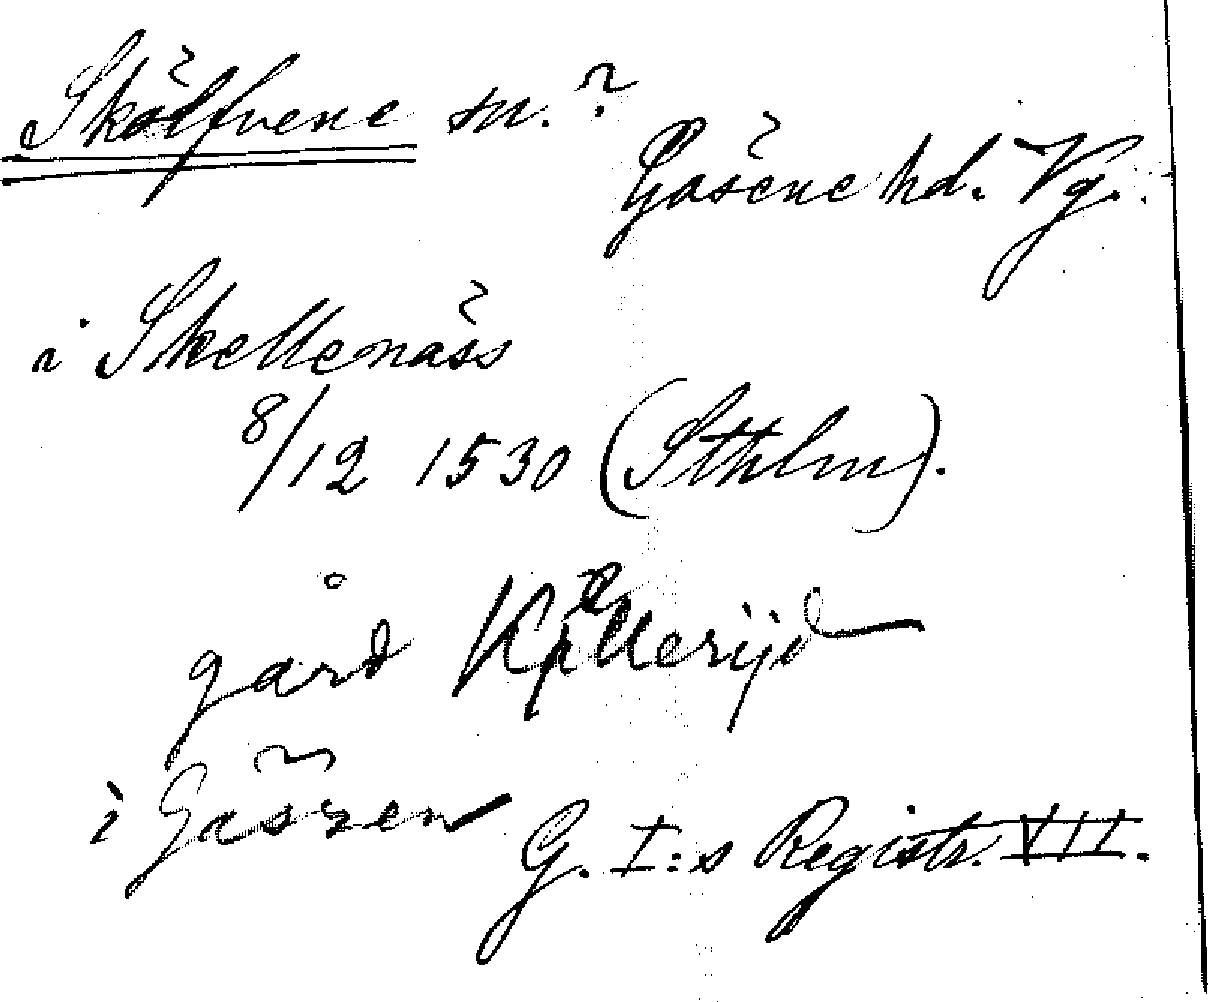 Skölfvene sn.?
Gäsene hd. Vg.
i Skellenäss
8/12 1530 (Sthlm).
gård Källerijd
i Gäszen
G. I:s Registr. VII.